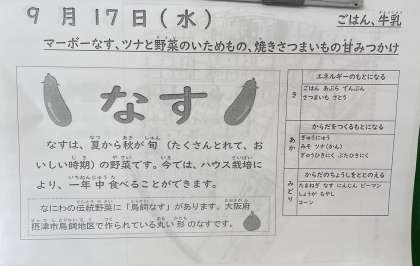 9月17日（水）
ごはん、牛乳
マーボーなす、ツナと野菜のいためもの、焼きさつまいもの甘みつかけ
なす
なすは、夏から秋が旬（たくさんとれて、お
いしい時期）の野菜です。今では、ハウス栽培に
より、一年中食べることができます。
なにわの伝統野菜に「鳥飼なす」があります。大阪府
摂津市鳥飼地区で作られている丸い形のなすです。
き
エネルギーのもとになる
ごはん あぶら でんぷん
さつまいも さとう
あか
からだをつくるもとになる
ぎゅうにゅう
みそ ツナ(かん)
ぎゅうひきにく ぶたひきにく
みどり
からだのちょうしをととのえる
たまねぎ なす にんじん ピーマン
しょうが もやし
コーン